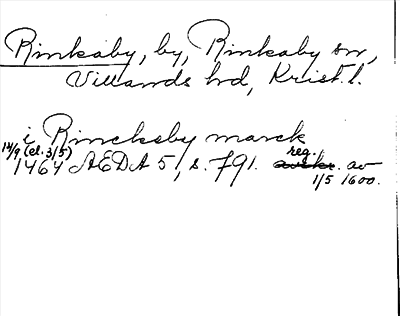 Rinkaby, by, Rinkaby sn,
Villands hd, Krist. l.
i Rincksby marck
14/9 (el. 3/5) 1464 AEDA 5, s. 791. reg. avskr. av 1/5 1600.